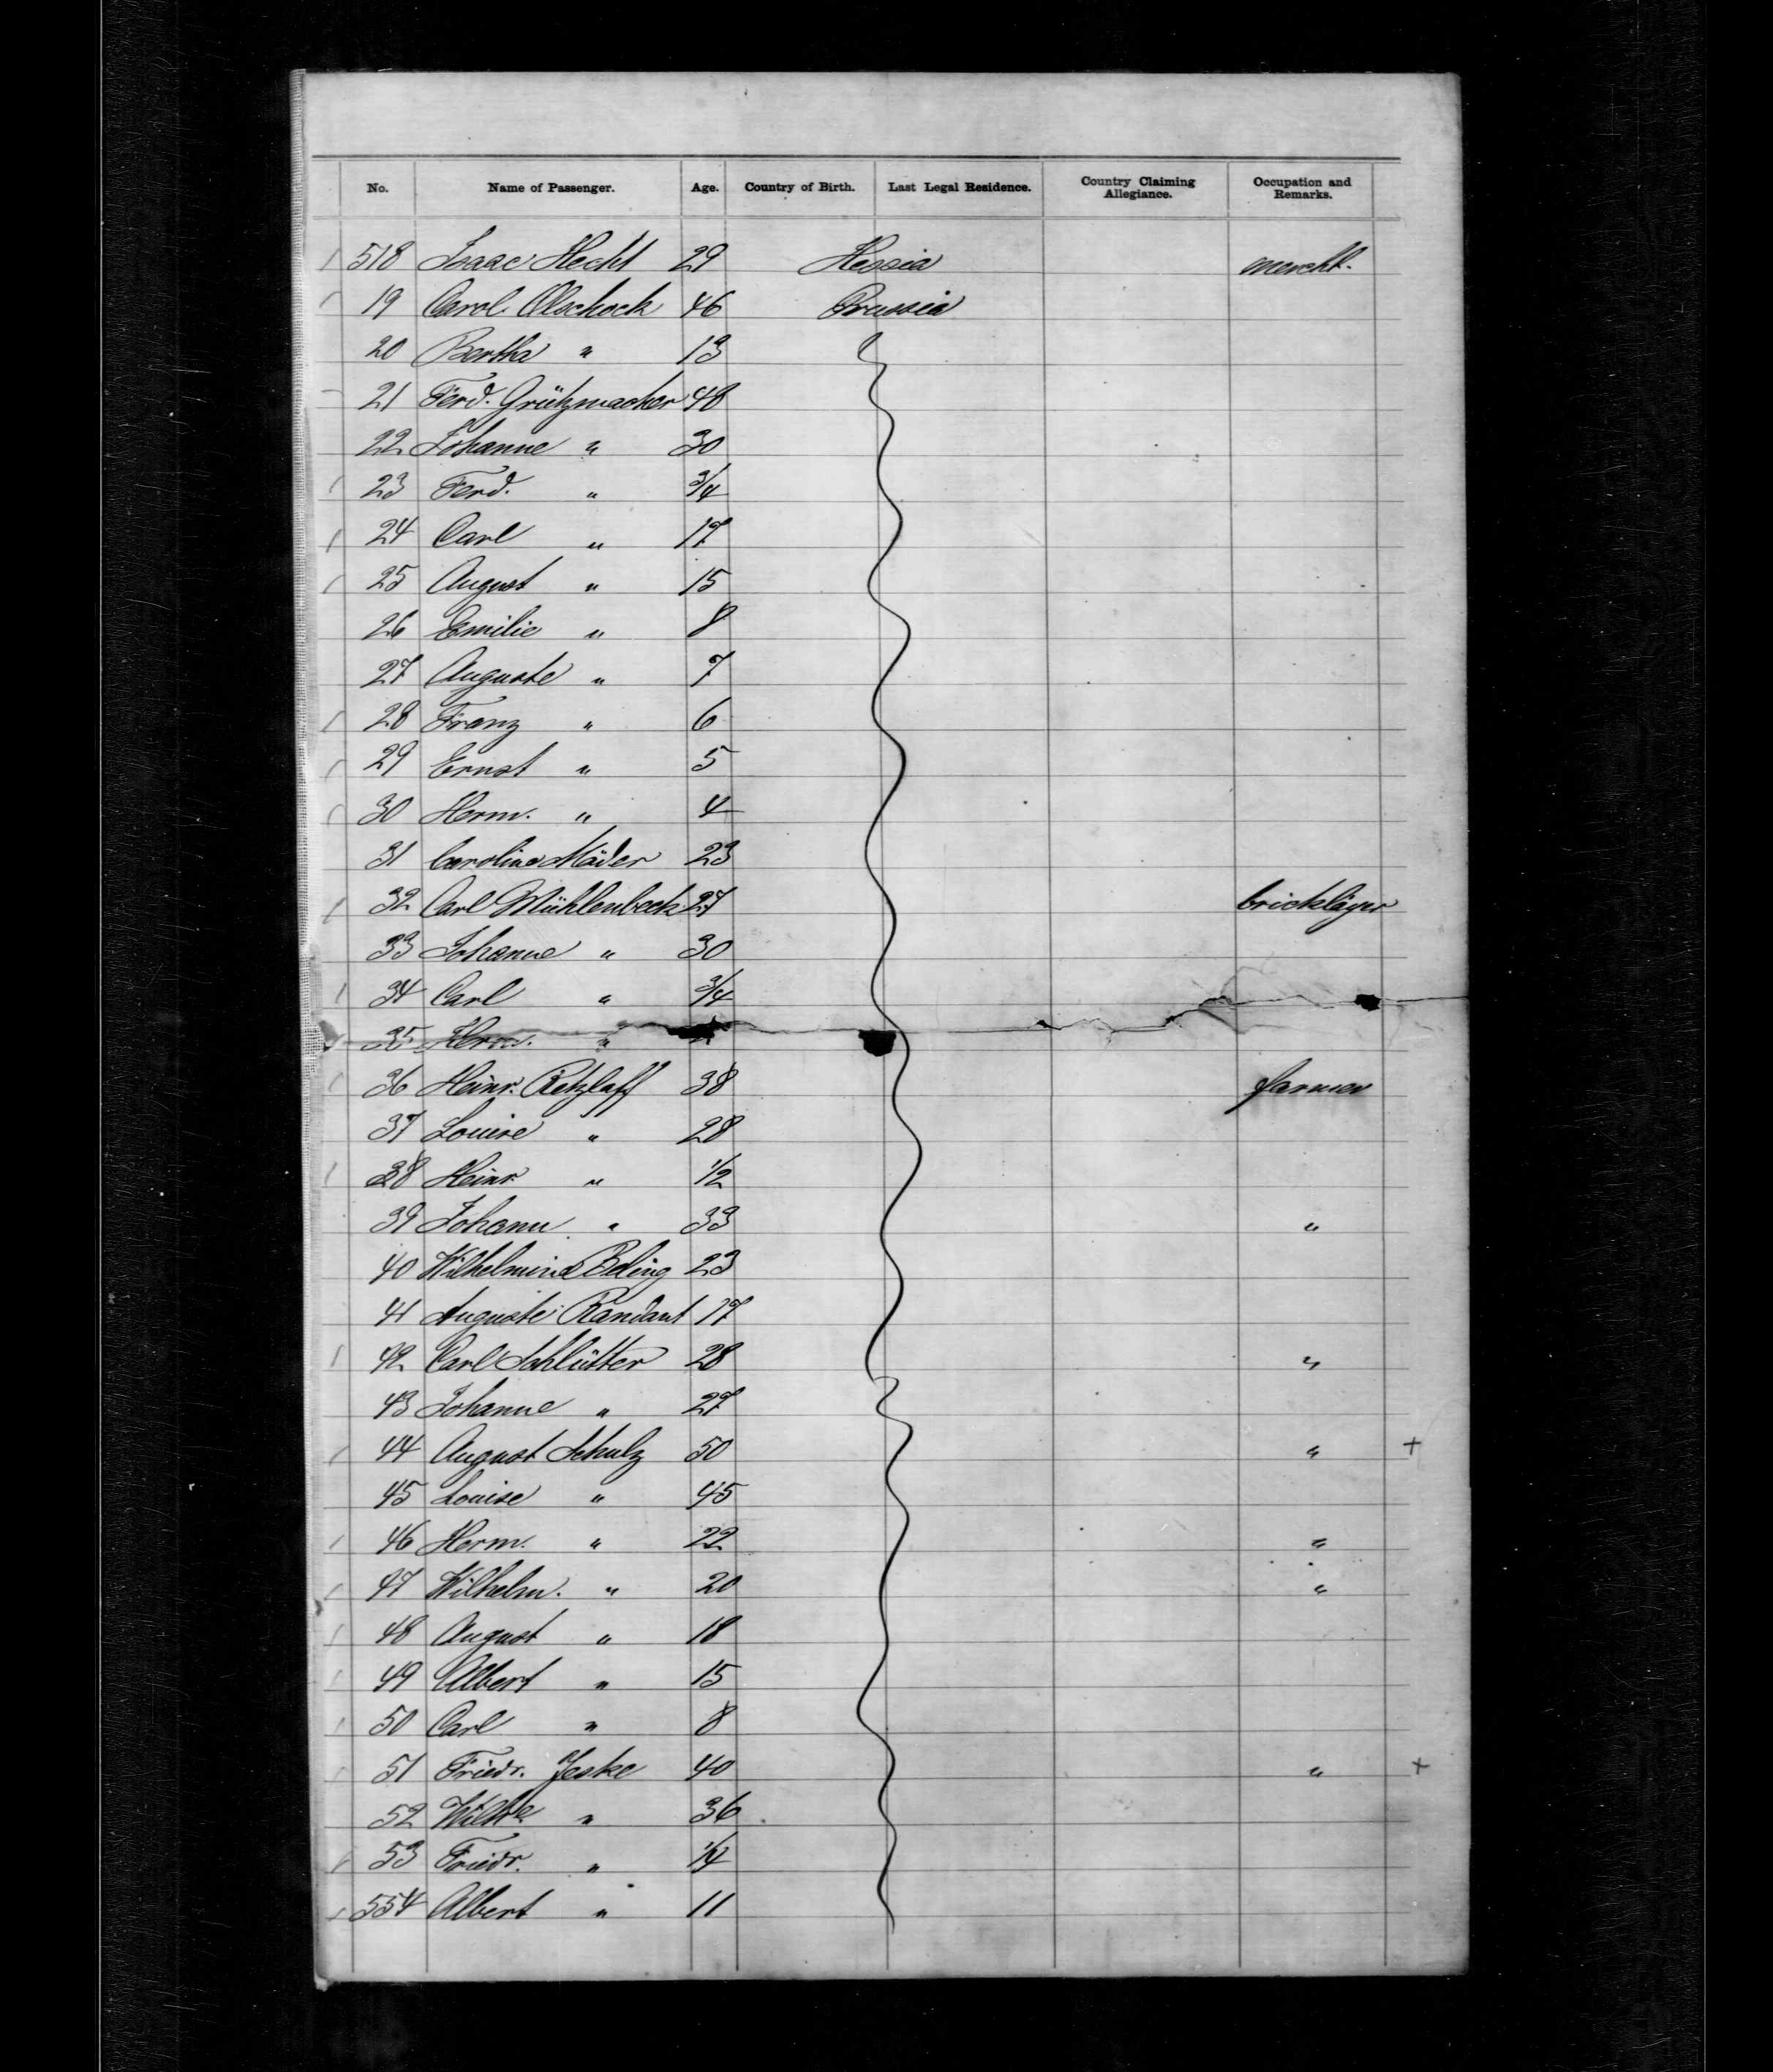 No. Name of Passenger. Age. Country of Birth. Last Legal Residence. Country Claiming Allegiance. Occupation and Remarks.
518 Isaac Hecht 29 Hessia mercht.
19 Carol. Olschock 46 Prussia
20 Bertha " 13
21 Ferd. Grützmacher 48
22 Johanne " 30
23 Ferd. " 3/4
24 Carl " 17
25 August " 15
26 Emilie " 8
27 Auguste " 7
28 Franz " 6
29 Ernst " 5
30 Herm. " 4
31 Caroline Mäder 23
32 Carl Mühlenbeck 27 bricklayer
33 Johanne " 30
34 Carl " 3/4
35 Herm. "
36 Heinr. Retzlaff 38 farmer
37 Louise " 28
38 Heinr. " 1/2
39 Johann " 33 "
40 Wilhelmine Beling 23
41 Auguste Randant 17
42 Carl Schlütter 28 "
43 Johanne " 27
44 August Schulz 50 " +
45 Louise " 45
46 Herm. " 22 "
47 Wilhelm. " 20 "
48 August " 18
49 Albert " 15
50 Carl " 8
51 Friedr. Jeske 40 " +
52 Wilhe " 36
53 Friedr. " 1/4
554 Albert " 11